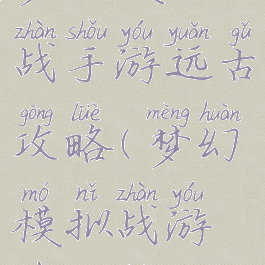 zhàn shǒu yóu yuǎn gǔ
战手游远古
gōng lüè mèng huàn
攻略(梦幻
mó nǐ zhàn yóu
模拟战游